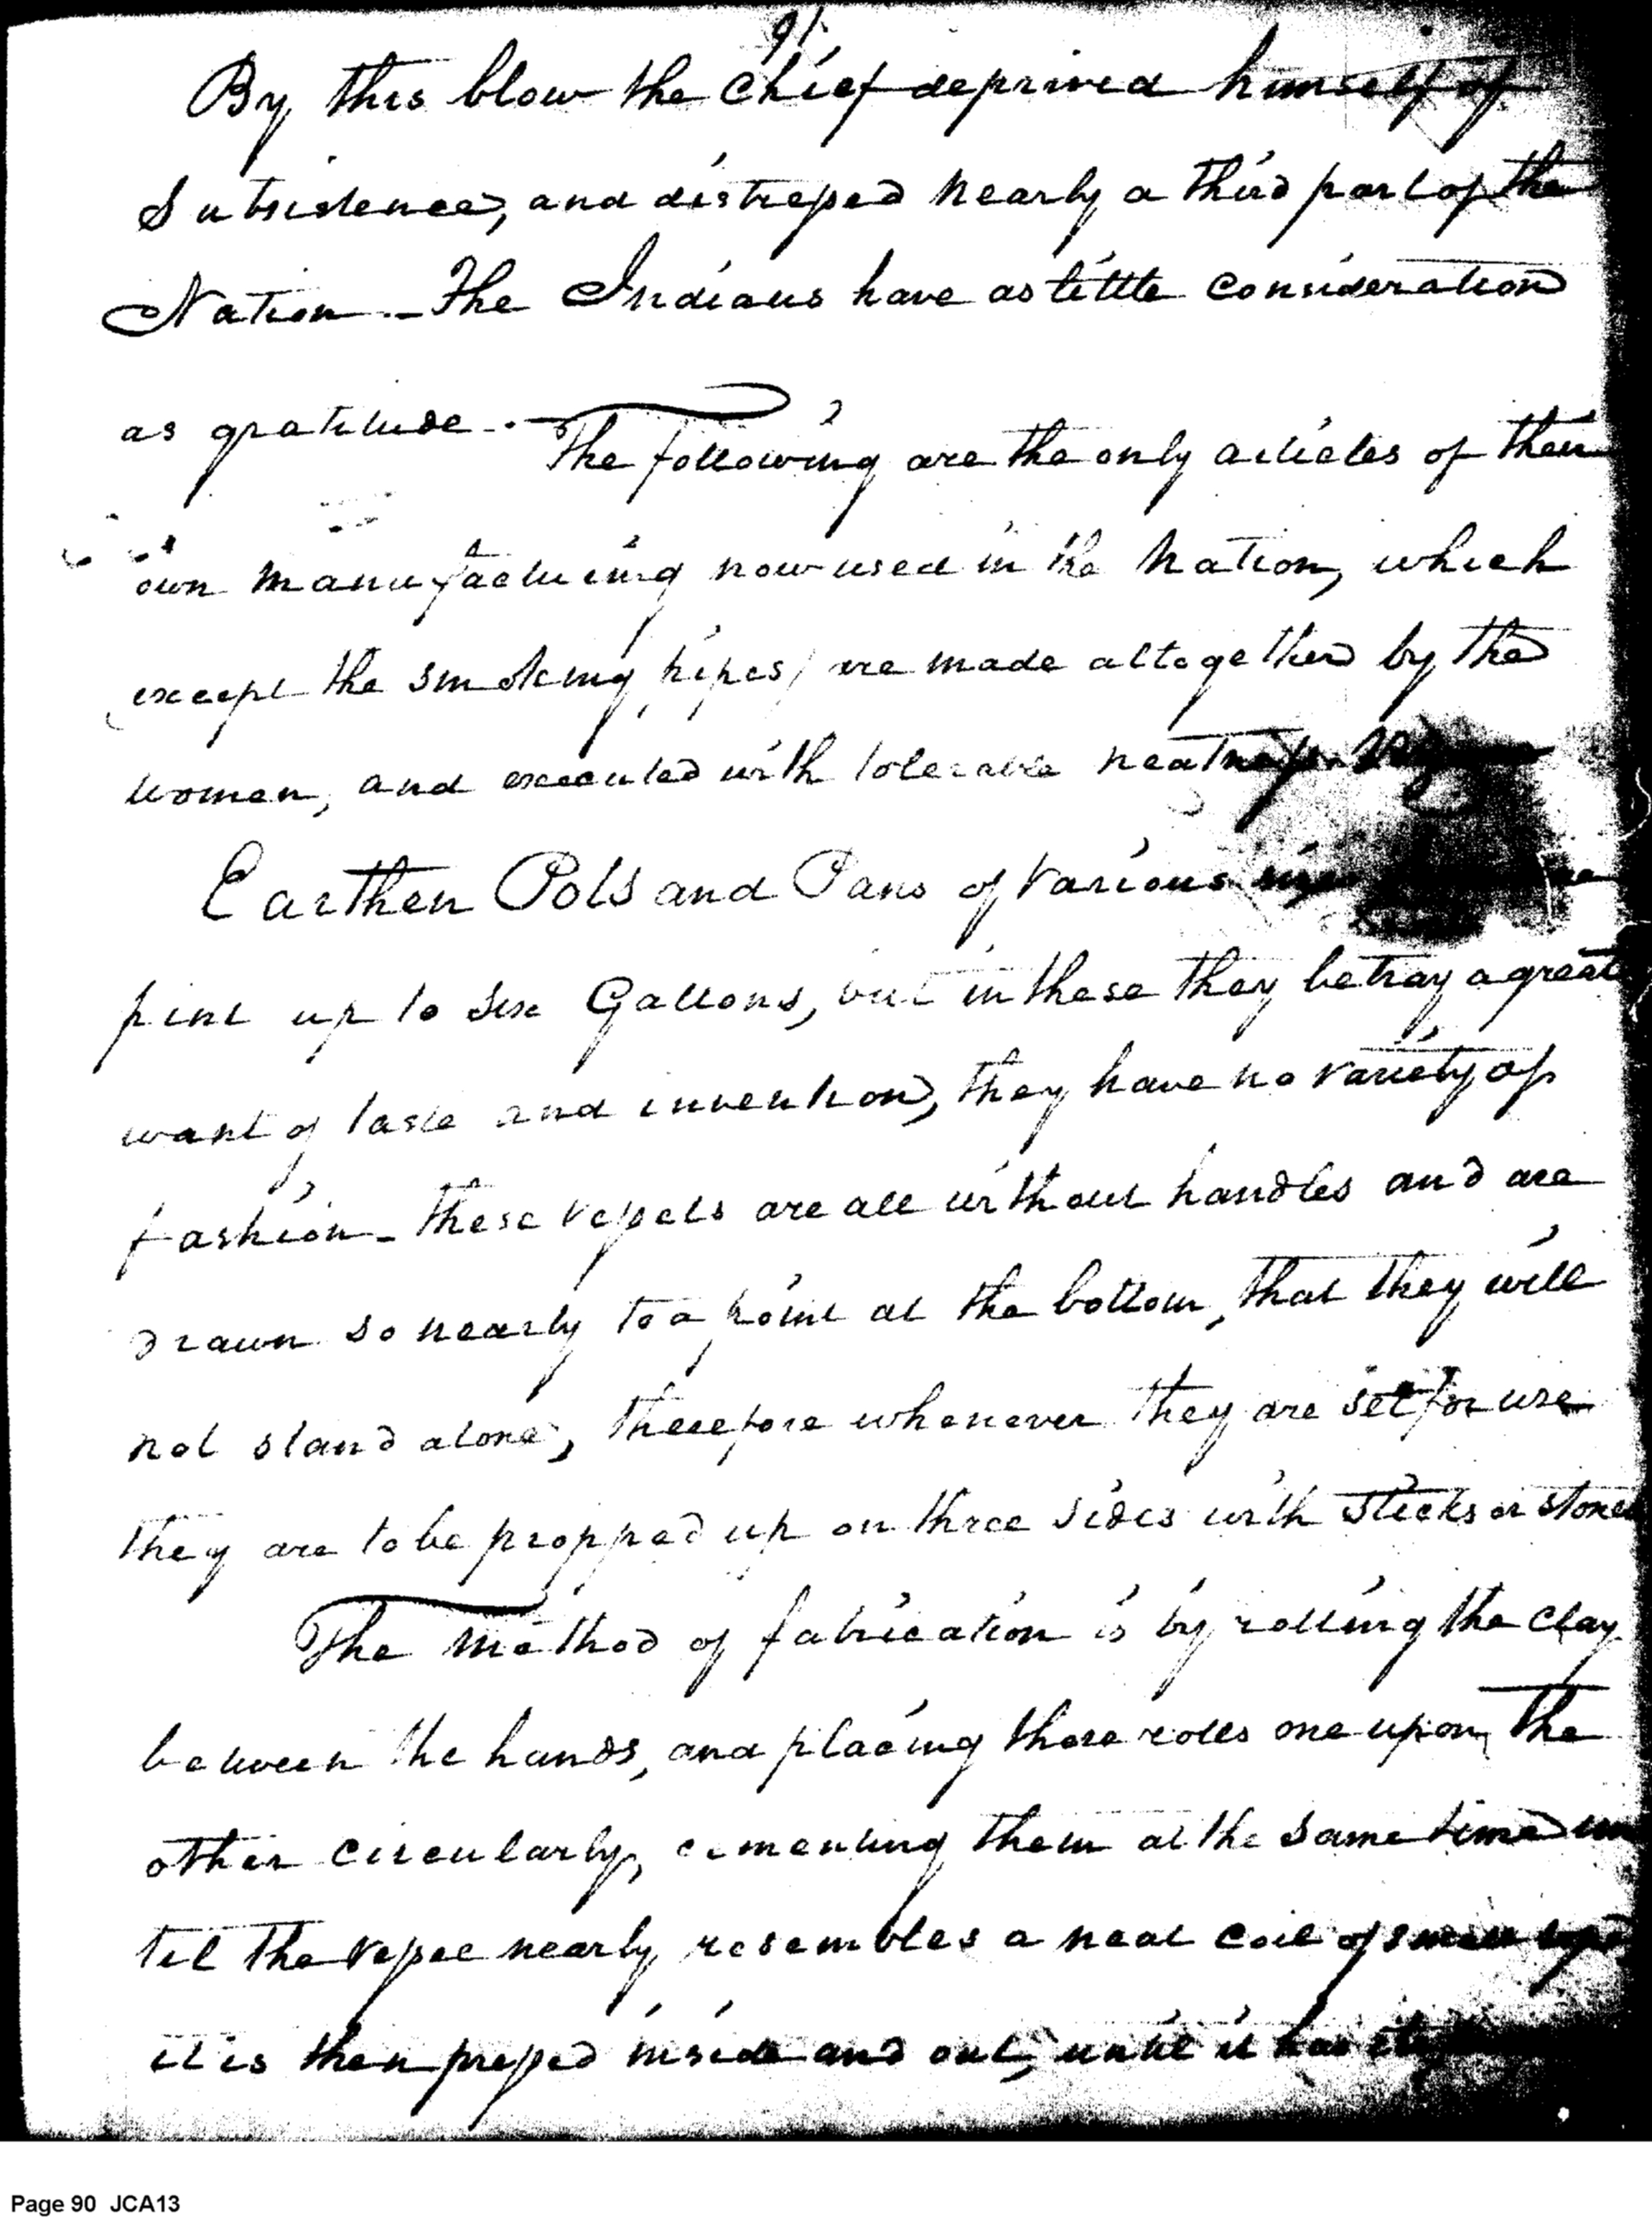 91.
By this blow the Chief deprived himself of
Subsistence, and distressed nearly a third part of the
Nation. _ The Indians have as little consideration
as gratitude. _
The following are the only articles of their
own manufacturing now used in the Nation, which
(except the smoking pipes) are made altogether by the
women, and executed with tolerable neatness.
Earthen Pots and Pans of various
pint up to six Gallons, but in these they betray a great
want of taste and invention, they have no variety of
fashion _ these vessels are all without handles and are
drawn so nearly to a point at the bottom, that they will
not stand alone, therefore whenever they are set for use
they are to be propped up on three sides with sticks or stones
The method of fabrication is by rolling the clay
between the hands, and placing those roles one upon the
other circularly, cementing them at the same time un
til the vessel nearly resembles a neat coil of small rope
it is then pressed inside and out, until it has
Page 90 JCA13